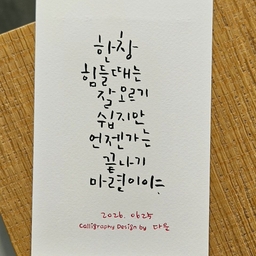 한창
힘들때는
잘 모르기
쉽지만
언젠가는
끝나기
마련이야
2026. 0625
Calligraphy Design by 다온